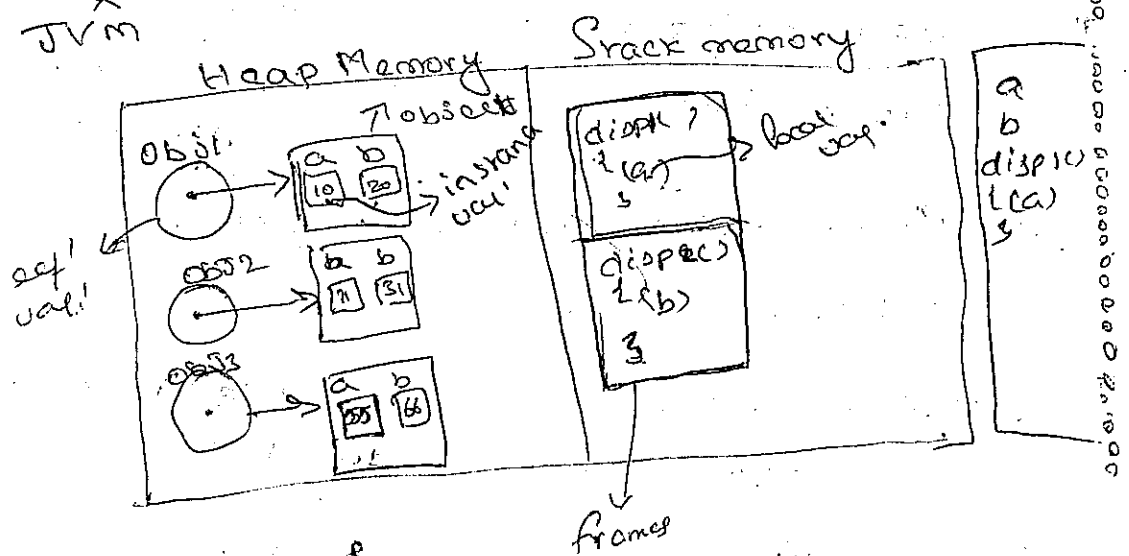 JVM
Heap Memory
Stack memory
Obj1
a b
10 20
object
instance
var'
ref'
var'
obj2
a b
31
obj3
a b
555 66
disp1( )
{ (a)
}
local
var'
disp2( )
{ (b)
}
frames
a
b
disp1()
{ (a)
}